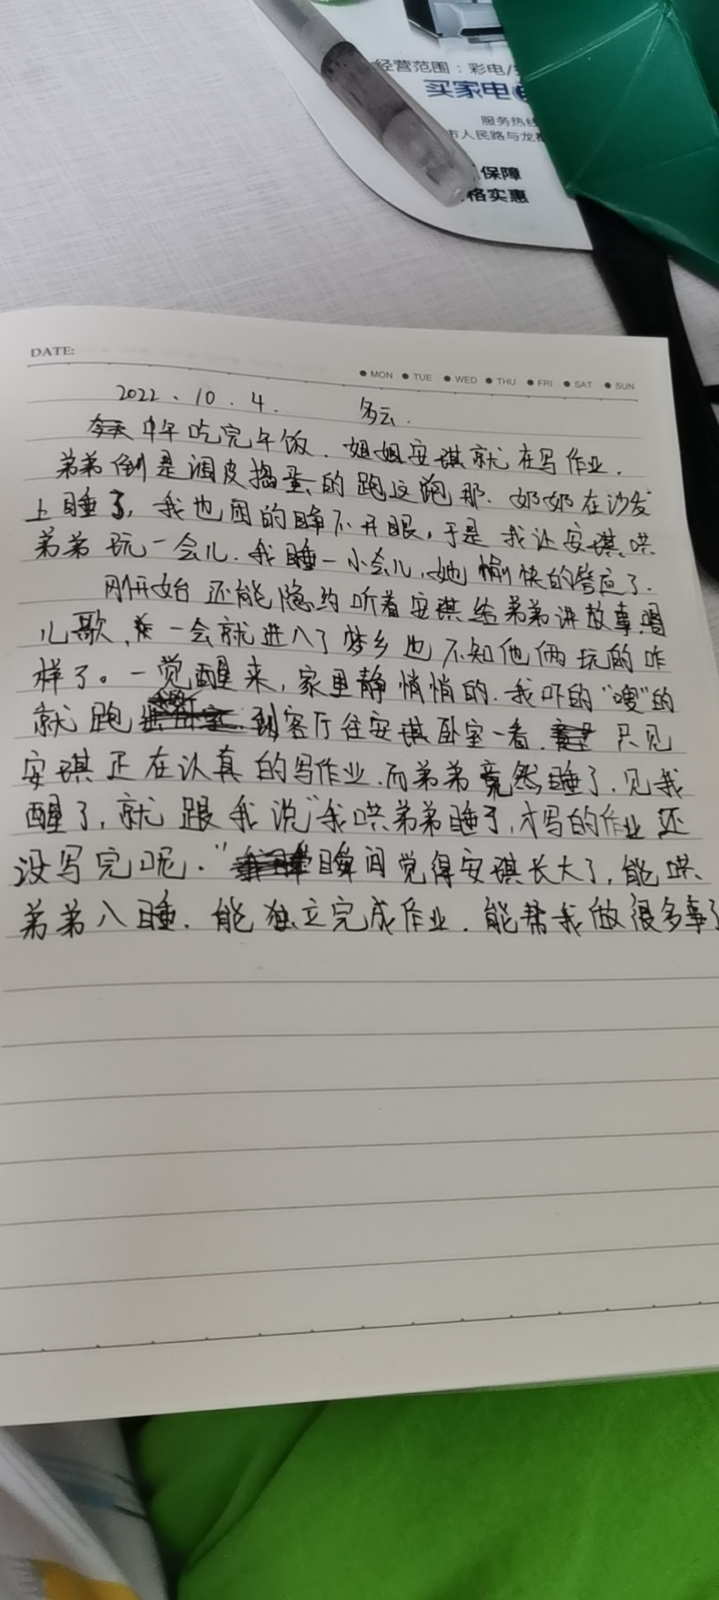 经营范围：彩电/
买家电
服务热线
市人民路与龙
保障
格实惠
DATE:
MON TUE WED THU FRI SAT SUN
2022.10.4. 多云.
中午吃完午饭.姐姐安琪就在写作业.
弟弟倒是调皮捣蛋的跑这跑那.奶奶在沙发
上睡了,我也困的睁不开眼,于是我让安琪哄
弟弟玩一会儿.我睡一小会儿,她愉快的答应了.
刚开始还能隐约听着安琪给弟弟讲故事唱
儿歌,一会就进入了梦乡也不知他俩玩的咋
样了。一觉醒来,家里静悄悄的.我吓的"嗖"的
就跑到客厅往安琪卧室一看.只见
安琪正在认真的写作业.而弟弟竟然睡了.见我
醒了,就跟我说"我哄弟弟睡了,才写的作业还
没写完呢."瞬间觉得安琪长大了,能哄
弟弟入睡.能独立完成作业.能帮我做很多事了